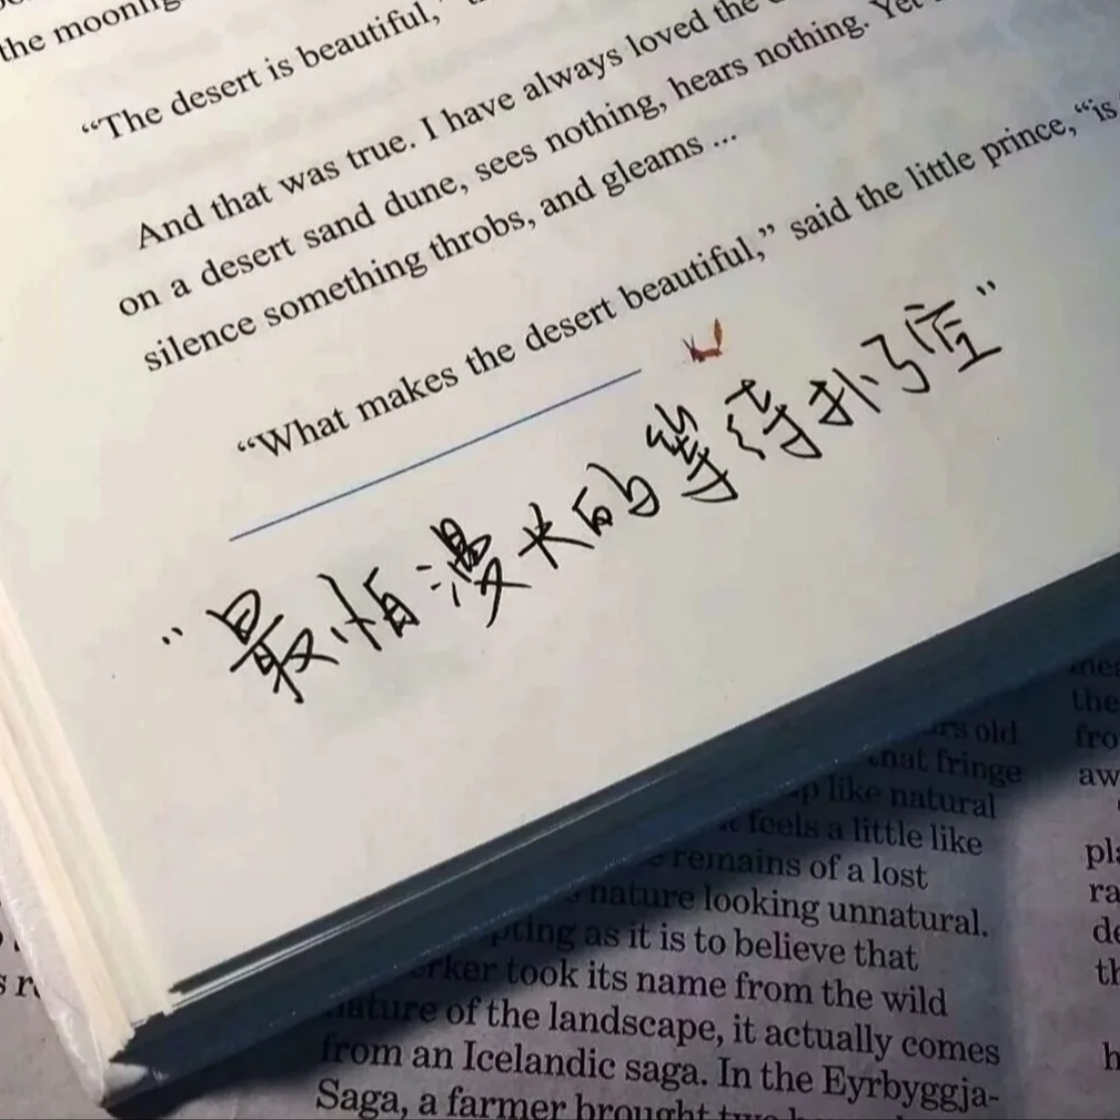 the moonlig
“The desert is beautiful,”
And that was true. I have always loved the
on a desert sand dune, sees nothing, hears nothing. Yet
silence something throbs, and gleams ...
“What makes the desert beautiful,” said the little prince, “is
“最怕漫长的等待扑了空”
old
that fringe
like natural
feels a little like
remains of a lost
nature looking unnatural.
as it is to believe that
took its name from the wild
nature of the landscape, it actually comes
from an Icelandic saga. In the Eyrbyggja-
Saga, a farmer brought two
the
fro
aw
pla
ra
de
th